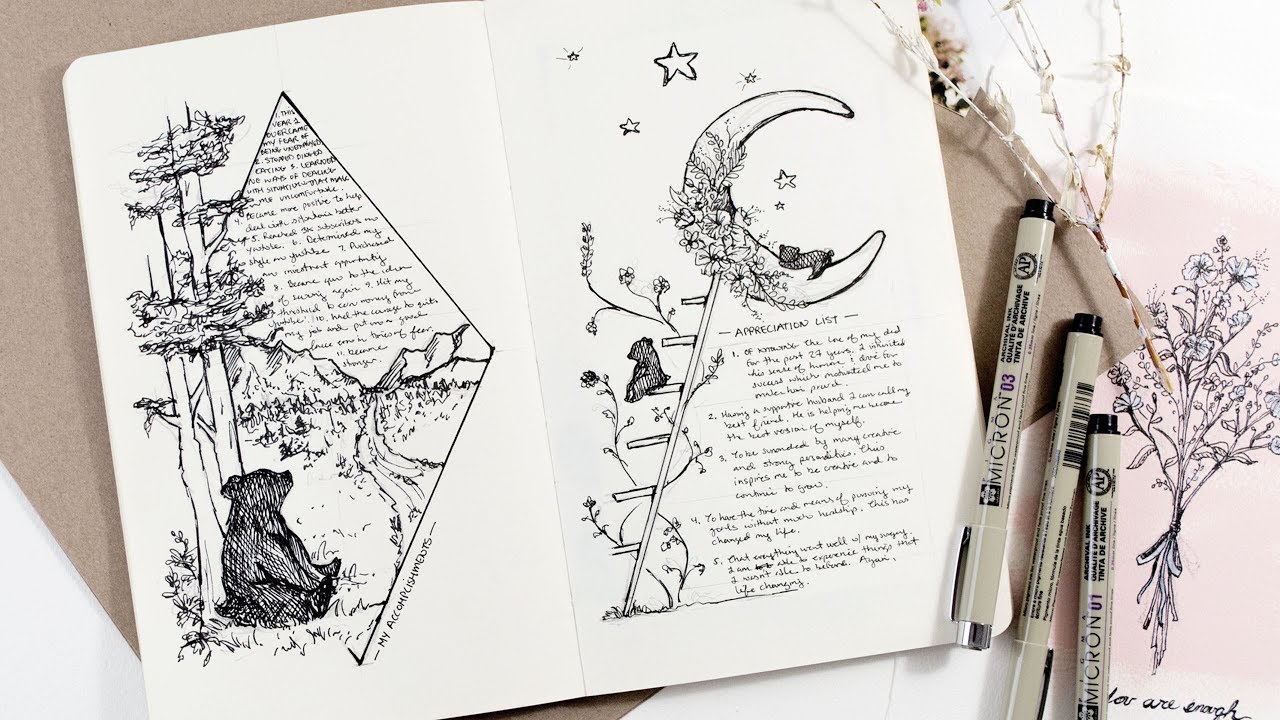 1. THIS
YEAR I
OVERCAME
MY FEAR OF
BEING UNEMPLOYED
2. STOPPED BINGED
EATING 3. LEARNED
NE WAYS OF DEALING
WITH SITUATIONS THAT MAKE
ME UNCOMFORTABLE.
4. Became more positive to help
deal with obstacles better
5. Reached 31k subscribers on
youtube. 6. Determined my
style on youtube. 7.
an investment opportunity
8. Became open to the idea
of surgery again 9. Hit my
threshold earn money from
youtube. 10. Had the courage to quit
my job and put in a good
place even in times of fear.
11. Became
stronger.
MY ACCOMPLISHMENTS
— APPRECIATION LIST —
1. OF KNOWING the love of my dad
for the past 27 years. I inherited
his sense of humor & drive for
success which motivated me to
make him proud.
2. Having a supportive husband I can call my
best friend. He is helping me become
the best version of myself.
3. To be surrounded by many creative
and strong personalities. This
inspires me to be creative and to
continue to grow.
4. To have the time and means of pursuing my
goals without much hardship. This has
changed my life.
5. That everything went well w/ my surgery.
I am able to experience things that
I wasn't able to before. Again,
life changing.
MICRON 03
ARCHIVAL INK
QUALITÉ D'ARCHIVAGE
TINTA DE ARCHIVE
AP
MICRON 01
ARCHIVAL INK
QUALITÉ D'ARCHIVAGE
TINTA DE ARCHIVE
AP
You are enough